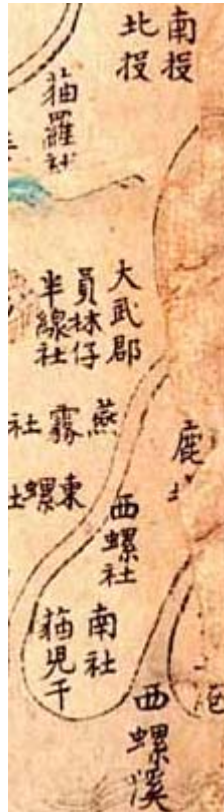 南投
北投
猫羅社
大武郡
員林仔
半線社
燕霧社
東螺社
鹿
西螺社
南社
猫兒干
西螺溪